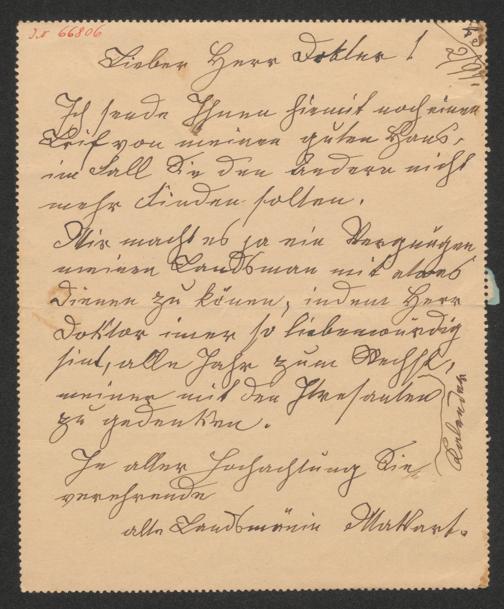 J.N 66806
Lieber Herr Doktor!
Ich sende Ihnen hiemit noch einen
Brif von meinen guten Hans,
im Fall Sie den andern nicht
mehr finden solten.
Mir macht es ja ein Vergnügen
meinen Landsman mit etwas
dienen zu könen, indem Herr
Doktor imer so liebenswürdig
sint, alle Jahr zum
meiner mit den Itresanten
Kalender
zu gedenken.
In aller Hochachtung Sie
verehrende
alte Landsmänin Makart.